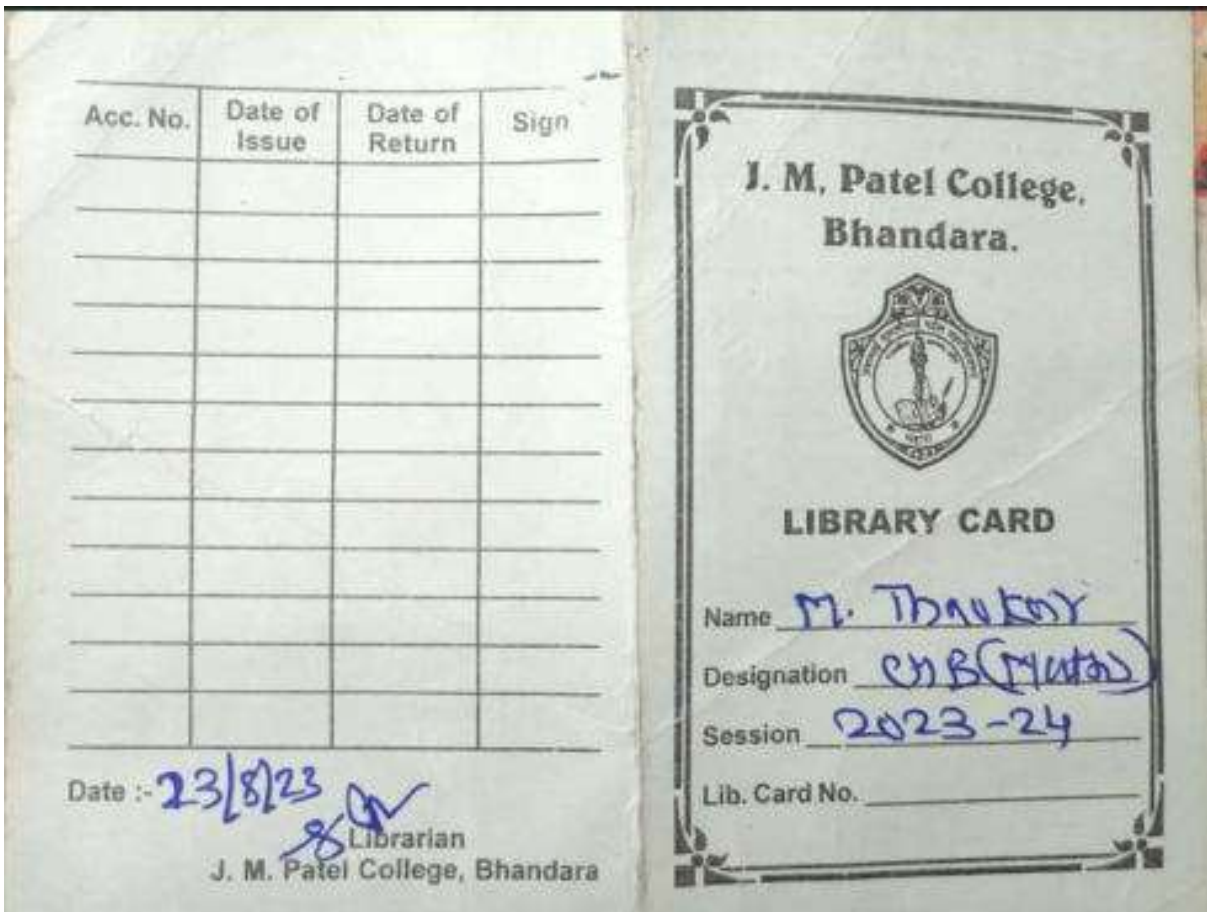 Acc. No. Date of Issue Date of Return Sign
Date :- 23/8/23
Librarian
J. M. Patel College, Bhandara
J. M. Patel College,
Bhandara.
LIBRARY CARD
Name M.
Designation CHB (Maths)
Session 2023-24
Lib. Card No.